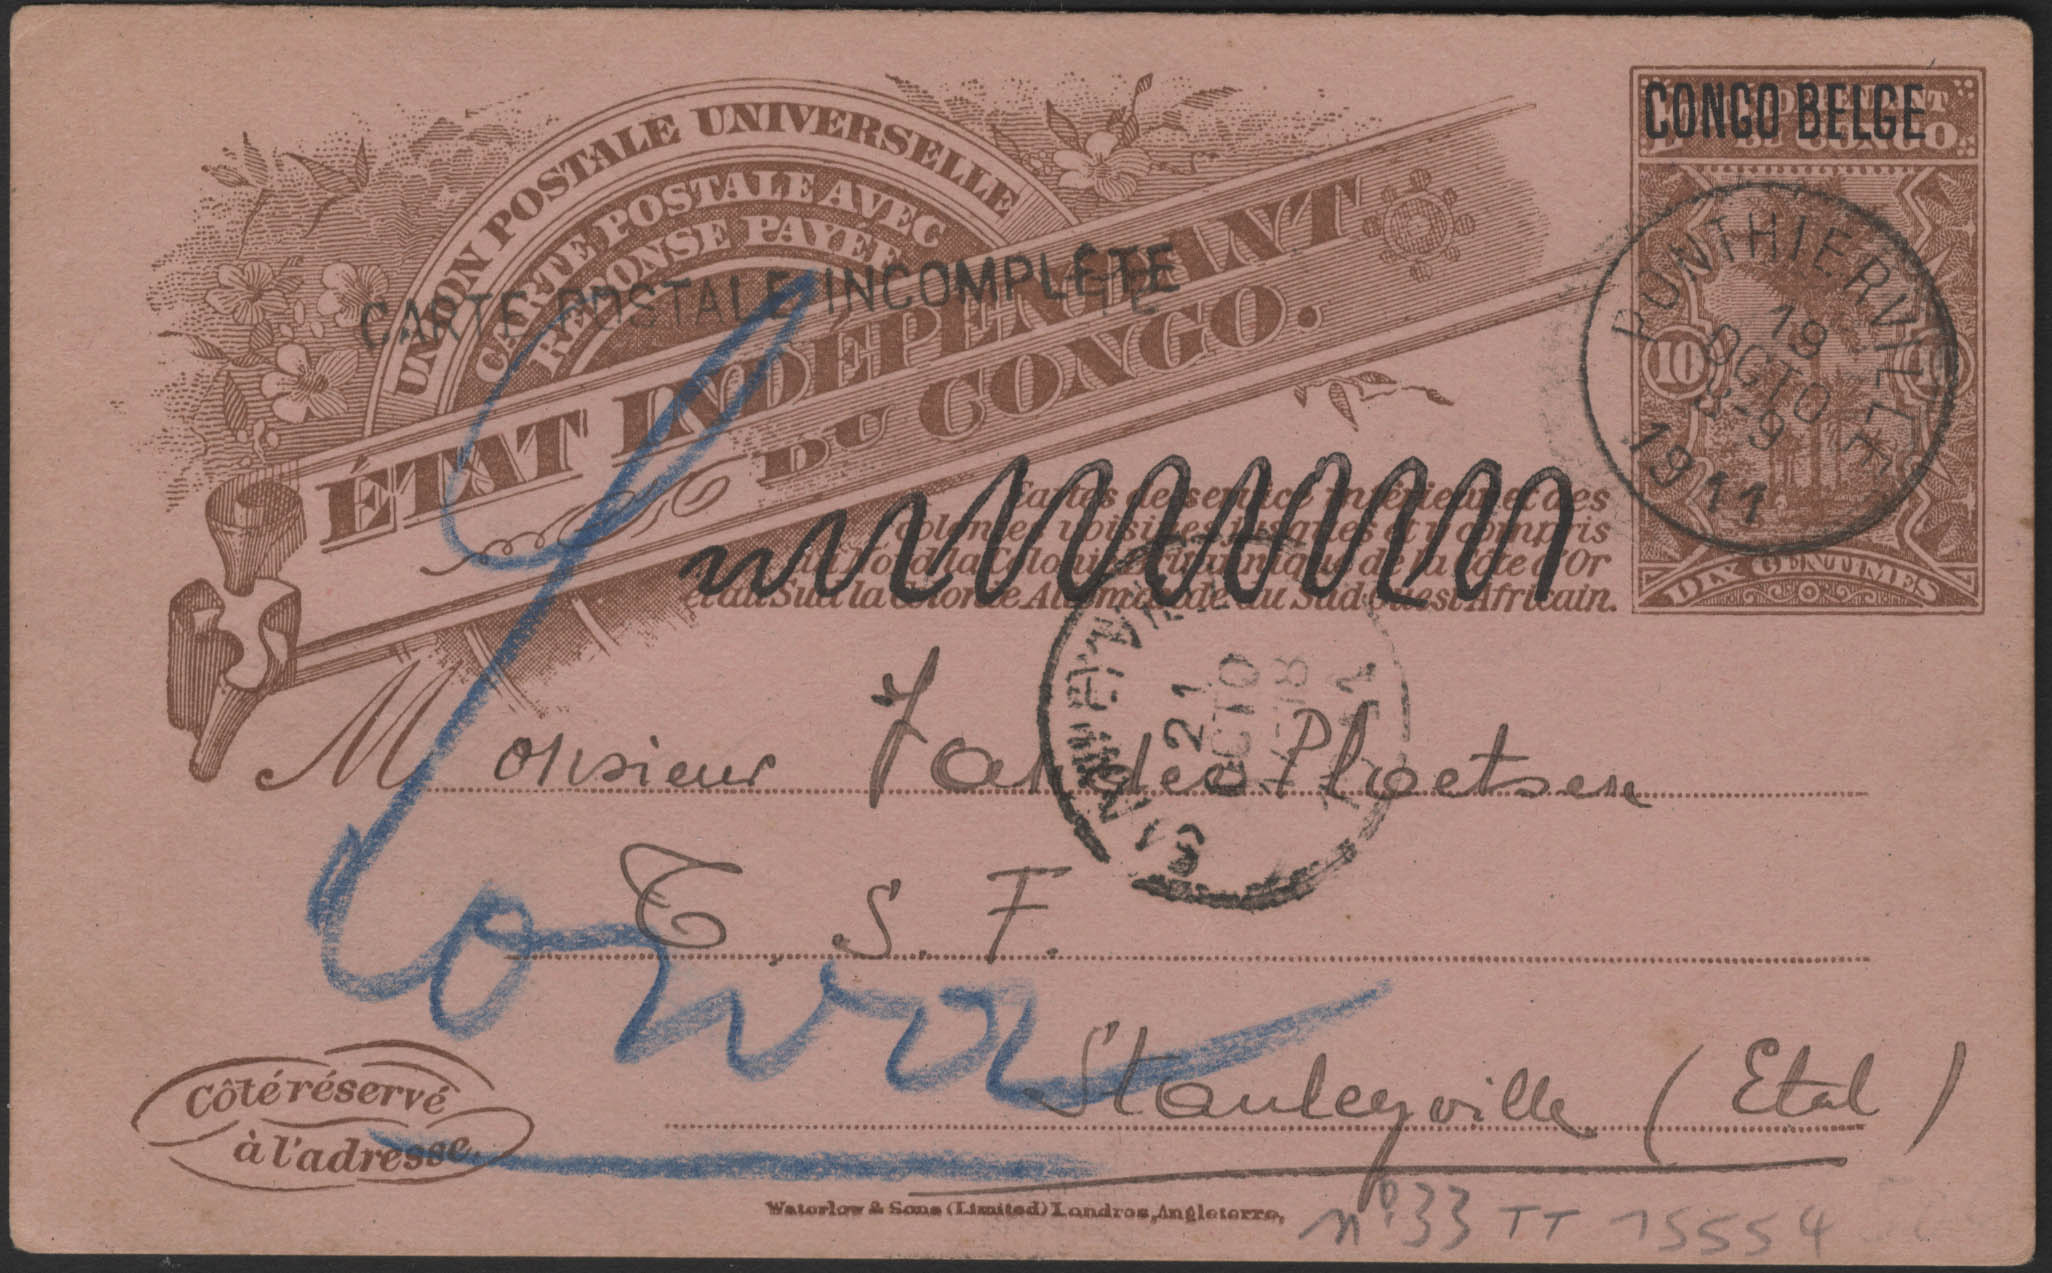 CONGO BELGE
UNION POSTALE UNIVERSELLE
CARTE POSTALE AVEC
RÉPONSE PAYÉE
CARTE POSTALE INCOMPLÊTE
ÉTAT INDÉPENDANT
DU CONGO.
10
DIX CENTIMES
PONTHIERVILLE
18
OCTO
8-9
1911
Cartes de service intérieur et des
colonies voisines jusques et y compris
au Nord la Colonie Britannique de la Côte d'Or
et au Sud la Colonie Allemande du Sud ouest Africain.
STANLEYVILLE
21
OCTO
Monsieur
T. S. F.
Stanleyville (Etat)
Côté réservé
à l'adresse.
Waterlow & Sons (Limited) Londres, Angleterre,
nº 33 TT 15554